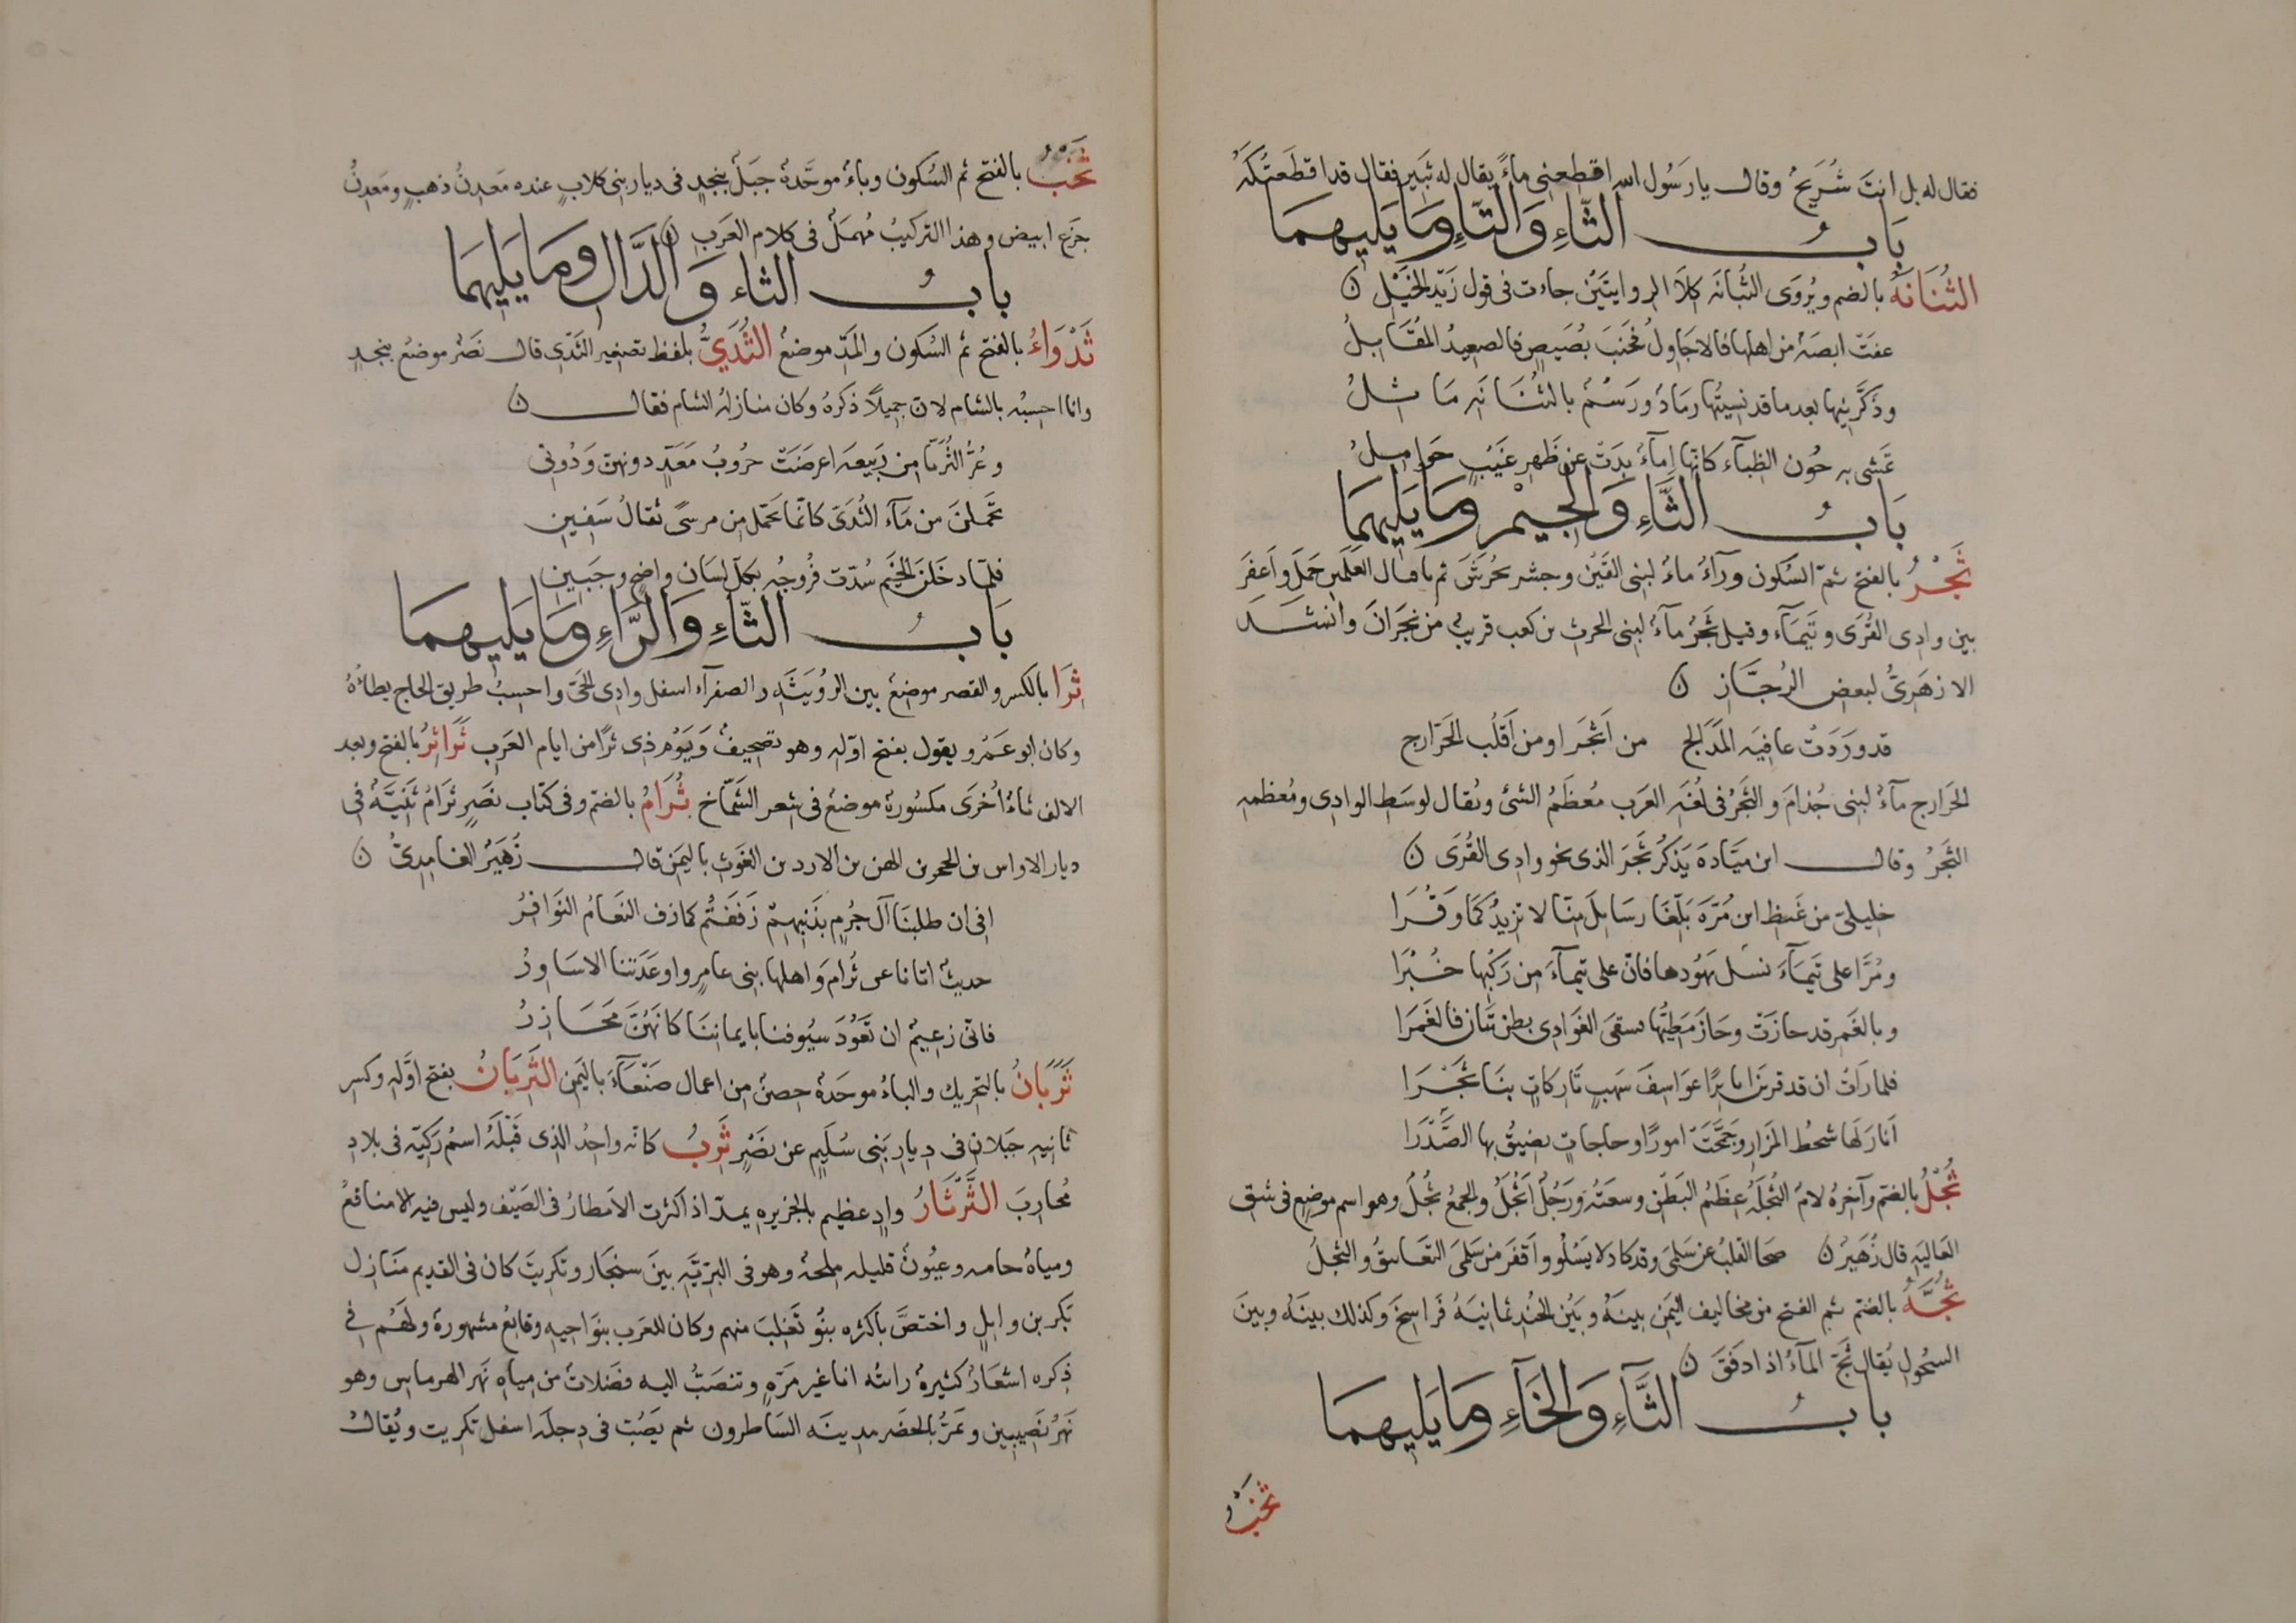 فقال له بل انت شُرَيحُ وقال يا رَسُول الله اقطِعنى ماءً يقال له ثَبِير فقال قد اقطَعتُكَهُ
بَابُ الثّاءِ وَالتّاءِ وَمَا يَليهِمَا
الثُنَانَهُ بالضم ويُروَى الثُبانَه كِلاَ الروايتَيْن جاءت فى قول زَيْد الخَيْل ن
عفَتْ ابضَة من اهلها فالاجَاوِلُ فجَنبَ بُضَيضٍ فالصعِيدُ المُقَابِلُ
وذكَّرَنِيها بعد ما قد نسِيتُها رمَادُ ورَسْمُ بالثُنَانَه مَا ثِلُ
تمَشى به حُون الظبآء كانّها إمآءُ بدَتْ عن ظَهرِ غَيْبٍ حَوامِلُ
بَابُ الثَّاءِ وَالجِيْمِ وَمَا يَلِيهِمَا
ثَجْرُ بالفتح ثمّ السُكون ورآءُ ماءُ لبنى القَيْن وجشر بحُرَشَ ثم باقبال العَلَمَين حَمَلٍ وَاَعفِرَ
بين وادى القُرَى وتَيمَآء وقيل ثَجْرُ مآءُ لبنى الحرث بن كعب قريبُ من نجَرَانَ وانشَد
الازهَرِىُّ لبعض الرُجَّازِ ن
قد وَرَدَتْ عافِيَه المَدَالج من اَثجَرَ او من اَقلُب الخَرَارج
الخَرَارج مآءُ لبنى جُذامَ والثَجْرُ فى لُغَه العَرَب مُعظَمُ الشئ ويُقال لوسَط الوادى ومُعظمه
الثَجْرُ وقال ابن ميّادَه يَذكُر ثَجْرَ الذى نحو وادى القُرَى ن
خليلىّ من غَيظ ابن مُرّة بَلّغَا رسَايلَ مِنّا لا تزيدُكمَا وَقْرَا
ومُرّا على تَيمَآءَ نسَل يهُودها فانّ على تيمآءَ من رَكْبِها خُبْرَا
وبالغَمِر قد جازَتْ وجَازَ مَطِيُّها سقى الغَوادِى بطنَ تيّان فالغَمرَا
فلما رَاَتْ ان قد قربن اباٍيرًا عوَاسِفَ سَهبٍ تَاركَاتٍ بنَا ثَجْرَا
اَثارَ لَها شحطُ المَزارِ وجَمجَمَتْ امورًا وحاجاتٍ يضِيقُ بها الصَدْرَا
ثُجْلُ بالضم وآخِرهُ لامُ الثُجلَه عِظَمُ البَطْن وسعَتهُ ورَجُلُ اَثجَلُ والجمعُ ثُجْلُ وهو اسم موضِعٍ فى شِق
العَاليَهِ قال زُهَيرُ ن صحَا القلبُ عن سَلمَى وقد كادَ لا يَسْلُو واَقفَر من سَلمَى التعَانيقُ والثُجلُ
ثُجَّةُ بالضم ثم الفتح من مخاليف اليَمَن بينَهُ وبَيْن الجُند ثمانيَهُ فَراسِخَ وكذلك بينَهُ وبينَ
السُحُول يُقال ثَجّ المآءُ اذا دفَقَ ن
بَابُ الثَّآءِ وَالخَآءِ وَمَا يَلِيهِمَا
ثَخْبُ
ثَخْبُ بالفتح ثم السُكون وباءُ موحّدة جبَلُ بنجدٍ فى ديار بنى كلابٍ عنده معَدِنُ ذهبٍ ومَعدِنُ
جَزعٍ ابيض وهذا التركيبُ مُهمَلُ فى كلام العَرَبِ ن
بابُ الثاء وَالدَّالِ وَمَا يَلِيهِمَا
ثَدْوَاءُ بالفتح ثم السُكون والمَدّ موضعُ الثُدَيُّ بلفظ تصغير الثَدْى قال نَصْرُ موضعُ بنجدٍ
وانا احسِبُه بالشام لانّ جميلاً ذكَرهُ وكان منازلهُ الشام فقال ن
وغُرُّ الثُريّا من رَبيعه اعرضَتْ حُروبُ مَعَدٍّ دونهن ودُونى
تحَمّلنَ من مآءِ الثُدَىّ كانّما تحَمّل من مرسىً ثقالُ سَفِين
فلمّا دخَلنَ الخَيْم سُدّت فُروجُه بكلّ لبَان واضِحٍ وجَبِين
بَابُ الثّاءِ وَالرَّاءِ وَمَا يَليهِمَا
ثِرَا بالكسر والقصر موضعُ بين الرُوَيثَه والصفرآء اسفل وادى الجَىّ واحسِبُ طريق الحاج يطأهُ
وكان ابو عَمْرو يقول بفتح اوّله وهو تصحِيفُ وَيَوْم ذى ثرًا من ايام العَرَبِ ثَرَائِرُ بالفتح وبعد
الالف ثاءُ اُخرَى مكسُورة موضعُ فى شعر الشَمّاخ ثُرَامُ بالضم وفى كتاب نَصْرٍ ثَرَامُ ثَنِيّةُ فى
ديار الاواس بن الحجر بن الهن بن الازد بن الغَوث باليَمَن قال زُهَيرُ الغامِدِىُّ ن
افى ان طلبنَا آلَ جُرمٍ بذَنبِهِم زَفَفْتُم كما زف النعَامُ النَوَافِرُ
حديثُ اتانا عن ثُرامَ واهلِها بنى عامِرٍ واوعَدَتنا الاسَاوِدُ
فانّى زعِيمُ ان تعُودَ سيُوفنا بايماننَا كانّهُنّ مَحَازِرُ
ثَرَبَانُ بالتحريك والباءُ موحّدة حِصنُ من اعمال صَنعَآءَ باليَمَن الثَرِبَانُ بفتح اوّله وكسر
ثانِيه جبلان فى دِيار بَنى سُلَيمٍ عن نَصْرٍ ثَرِبُ كانّه واحِدُ الذى قَبْلَهُ اسمُ رَكيّه فى بلاد
مُحارِبَ الثَّرْثَارُ وادٍ عظيم بالجزيره يمدّ اذا كثرت الامَطارُ فى الصَيْف وليس فيه الا مناقعُ
ومياهُ حامه وعيُونُ قليله ملحة وهو فى البَرّيّه بينَ سِنجَار وتكريتَ كان فى القديم مَنَازل
بَكر بن وايلٍ واختصَّ باكثره بنُو تَغلِبَ منهم وكان للعَرَب بنوَاحِيهِ وقائعُ مشهورة ولَهُم فى
ذِكره اشعَارُ كثيرة رايتُه انا غير مَرّةٍ وتنصَبُّ اليه فضَلاتُ من مياه نَهر الهرماس وهو
نَهرُ نَصِيبين وتمَرُّ بالحضر مدينه السَاطرون ثم يَصُبّ فى دِجلَه اسفل تكرِيت ويُقالُ